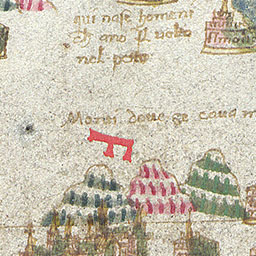 qui nase homeni
chano el volto
nel peto
Monti doue ge caua m
F